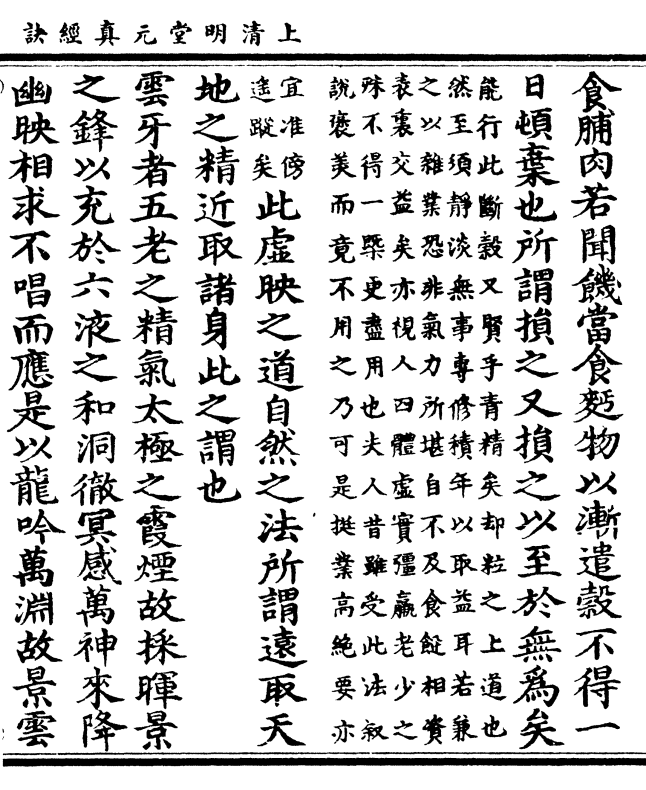 上清明堂元真經訣
食脯肉若聞饑當食麫物以漸遣穀不得一
日頓棄也所謂損之又損之以至於無為矣
能行此斷穀又賢乎青精矣却粒之上道也
然至須靜淡無事專修積年以取益耳若兼
之以雜業恐非氣力所堪自不及食相資
表裏交益矣亦視人四體虛實彊羸老少之
殊不得一槩更盡用也夫人昔雖受此法叙
說褒美而竟不用之乃可是挺業高絕要亦
宜准傍
遙蹤矣
此虛映之道自然之法所謂遠取天
地之精近取諸身此之謂也
雲牙者五老之精氣太極之霞煙故採暉景
之鋒以充於六液之和洞徹冥感萬神來降
幽映相求不唱而應是以龍吟萬淵故景雲